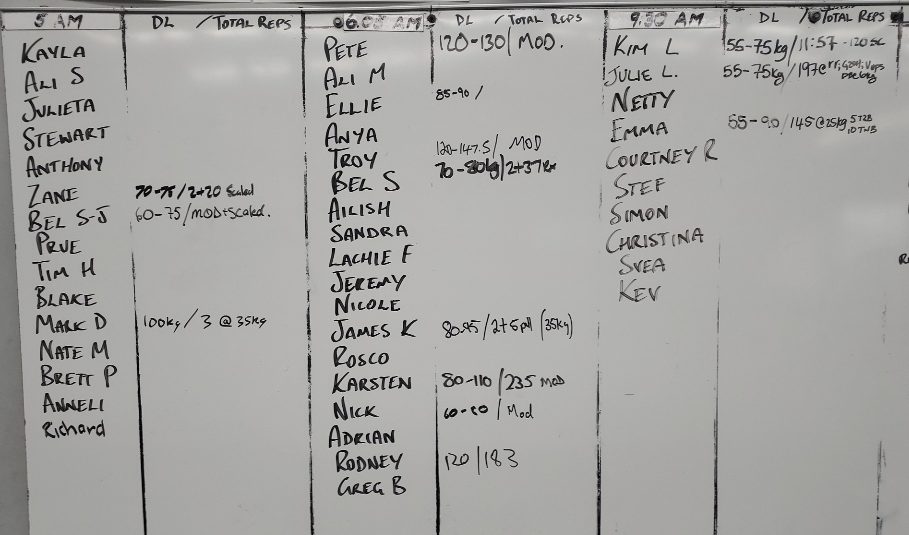 5 AM DL / TOTAL REPS
KAYLA
ALI S
JULIETA
STEWART
ANTHONY
ZANE 70-75/2+20 Scaled
BEL S-J 60-75/MOD+Scaled.
PRUE
TIM H
BLAKE
MARK D 100kg/3 @35kg
NATE M
BRETT P
ANNELI
Richard
06.05 AM DL / TOTAL REPS
PETE 120-130/ MOD.
ALI M
ELLIE 85-90 /
ANYA
TROY 120-147.5/ MOD
BEL S 70-80kg/2+37
AILISH
SANDRA
LACHIE F
JEREMY
NICOLE
JAMES K 80-95/2+5 (35kg)
ROSCO
KARSTEN 80-110/235 MOD
NICK 60-80 / Mod
ADRIAN
RODNEY 120/183
GREG B
9.30 AM DL / TOTAL REPS
KIM L 55-75kg/11:57
JULIE L. 55-75kg/197@
NETTY
EMMA 55-90/145@25kg
COURTNEY R
STEF
SIMON
CHRISTINA
SVEA
KEV